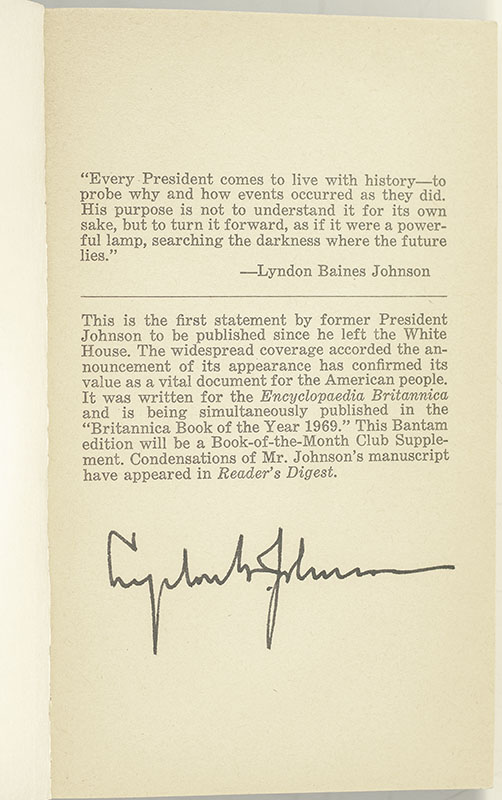 “Every President comes to live with history—to
probe why and how events occurred as they did.
His purpose is not to understand it for its own
sake, but to turn it forward, as if it were a power-
ful lamp, searching the darkness where the future
lies.”
—Lyndon Baines Johnson
This is the first statement by former President
Johnson to be published since he left the White
House. The widespread coverage accorded the an-
nouncement of its appearance has confirmed its
value as a vital document for the American people.
It was written for the Encyclopaedia Britannica
and is being simultaneously published in the
“Britannica Book of the Year 1969.” This Bantam
edition will be a Book-of-the-Month Club Supple-
ment. Condensations of Mr. Johnson’s manuscript
have appeared in Reader’s Digest.
Lyndon B. Johnson